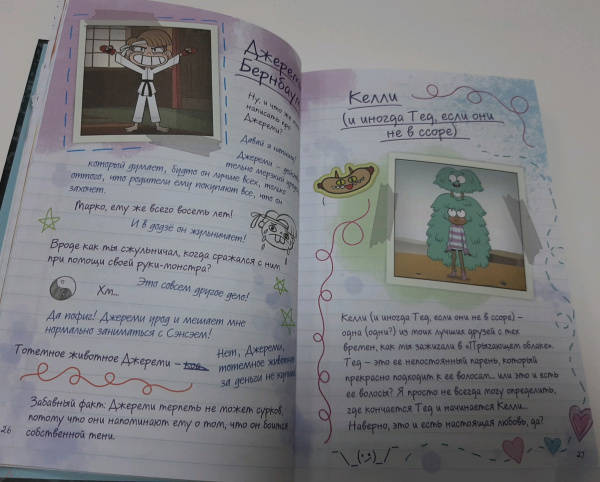 Джереми
Бернбаум
Ну, и что же
написать про
Джереми?
Давай я начну!
Джереми –
тельно мерзкий
который думает, будто он лучше всех, только
оттого, что родители ему покупают все, что он
захочет.
Марко, ему же всего восемь лет!
И в додзё он жульничает!
Вроде как ты сжульничал, когда сражался с ним
при помощи своей руки-монстра?
Это совсем другое дело!
Хм...
Да пофиг! Джереми урод и мешает мне
нормально заниматься с Сэнсэем!
Тотемное животное Джереми –
Нет, Джереми,
тотемное животное
за деньги не
Забавный факт: Джереми терпеть не может сурков,
потому что они напоминают ему о том, что он боится
собственной тени.
26
Келли
(и иногда Тед, если они
не в ссоре)
Келли (и иногда Тед, если они не в ссоре) –
одна (одни?) из моих лучших друзей с тех
времен, как мы зажигали в «Прыгающем облаке».
Тед – это ее непостоянный парень, который
прекрасно подходит к ее волосам... или это и есть
ее волосы? Я просто не всегда могу определить,
где кончается Тед и начинается Келли...
Наверно, это и есть настоящая любовь, да?
¯\_(ツ)_/¯
27